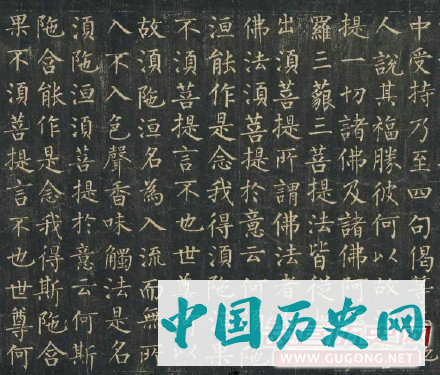 中受持乃至四句偈
人說其福勝彼何以故
提一切諸佛及諸佛阿
羅三藐三菩提法皆從
出須菩提所謂佛法者
佛法須菩提於意云何
洹能作是念我得須陁
不須菩提言不也世尊以
故須陁洹名為入流而無所
入不入色聲香味觸法是名
須陁洹須菩提於意云何斯
陁含能作是念我得斯陁含
果不須菩提言不也世尊何
中国历史网
www.GUGONG.NET